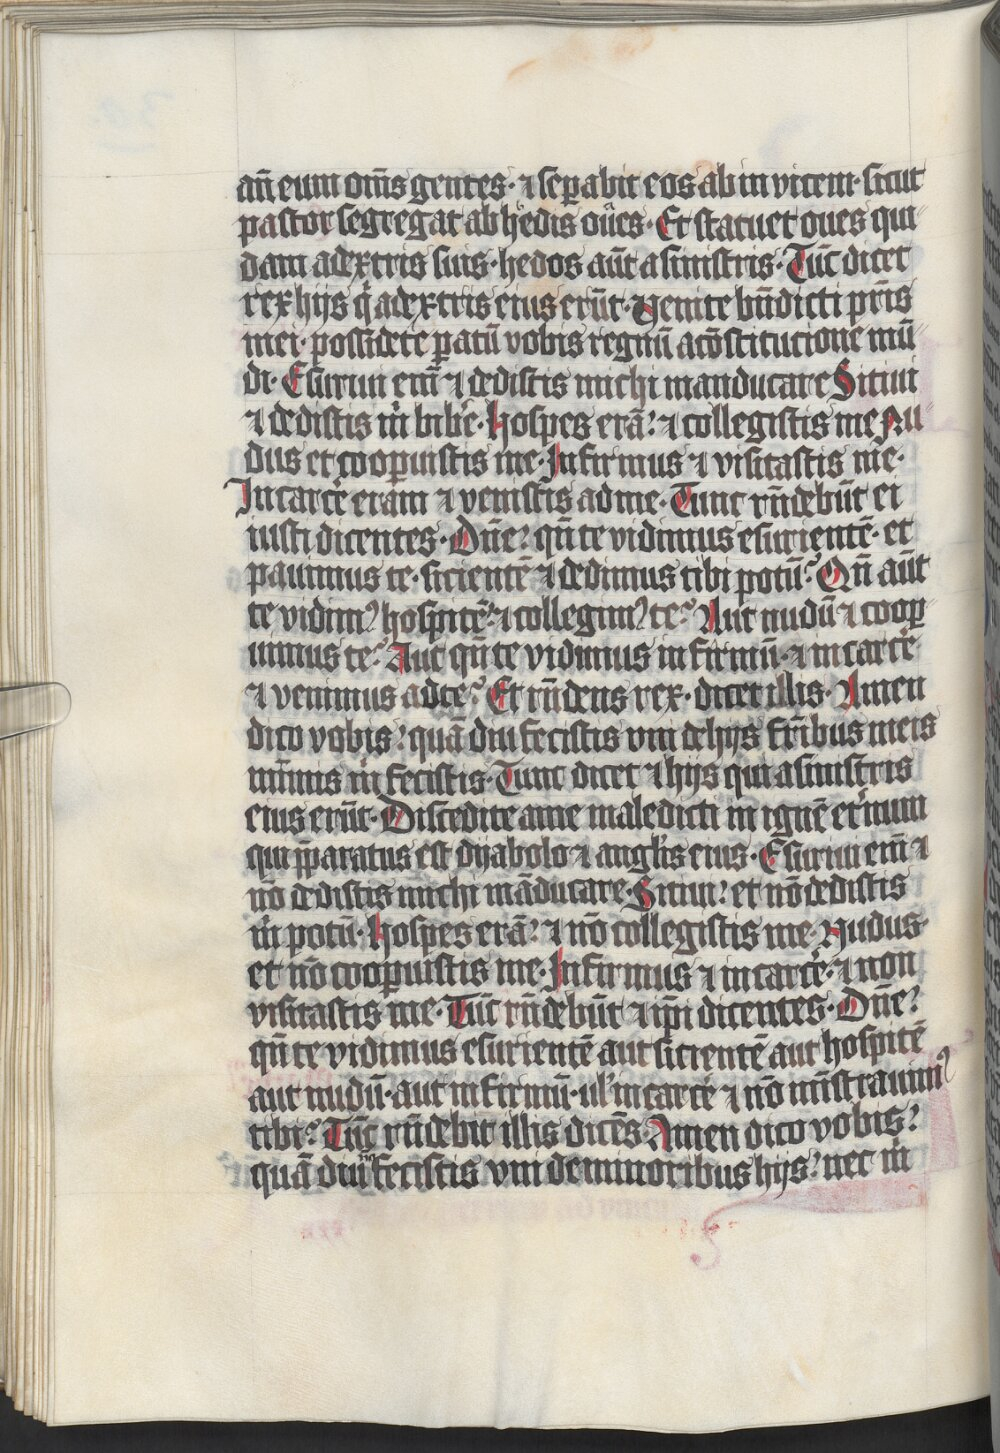 añ eum om̄s gentes · ⁊ sep̱abit eos ab in vicem · sicut
pastor segregat ab hedis oūes · Et statuet oues qui
dam a dextris suis · hedos aūt a sinistris · Tūc dicet
rex hijs q̇ a dextris eius erūt · Venite bn̄dicti pr̄is
mei · possidete ꝑatū vobis regnū a cōstitucione mū
di · Esuriui em̄ ⁊ dedistis michi manducare Sitiui
⁊ dedistis m̄ bibe̓ · Hospes erā : ⁊ collegistis me Nu
dus et cooꝑuistis me · Infirmus ⁊ visitastis me ·
In carce̓ eram ⁊ venistis ad me · Tunc rn̄debūt ei
iusti dicentes · Dn̄e : qn̄ te vidimus esurientē · et
pauimus te · sicientē ⁊ dedimus tibi potū ? Qn̄ aūt
te vidimꝰ hospitē : ⁊ collegimꝰ te ? Aut nudū ⁊ cooꝑ
uimus te ? Aut qn̄ te vidimus infirmū · ⁊ in carce̓
⁊ venimus ad te ? Et rn̄dens rex · dicet illis · Amen
dico vobis : quā diu fecistis vni de hijs fr̄ibus meis
minimis m̄ fecistis · Tunc dicet ⁊ hijs qui a sinistris
eius erūt · Discedite a me maledicti in ignē et̓num
qui p̄paratus est dyabolo ⁊ angl̓is eius · Esuriui em̄ ⁊
nō dedistis michi māducare · Sitiui : et nō dedistis
m̄ potū · Hospes erā : ⁊ nō collegistis me · Nudus ·
et nō cooꝑuistis me · Infirmus ⁊ in carce̓ · ⁊ non
visitastis me · Tūc rn̄debūt ⁊ ip̄i dicentes · Dn̄e :
qn̄ te vidimus esurientē aut sicientē aut hospitē
aut nudū · aut infirmū · ul̓ in carce̓ ⁊ nō mīstrauimꝰ
tibi ? Tūc rn̄debit illis dicēs · Amen dico vobis :
quā diu nō fecistis vni de minoribus hijs : nec m̄